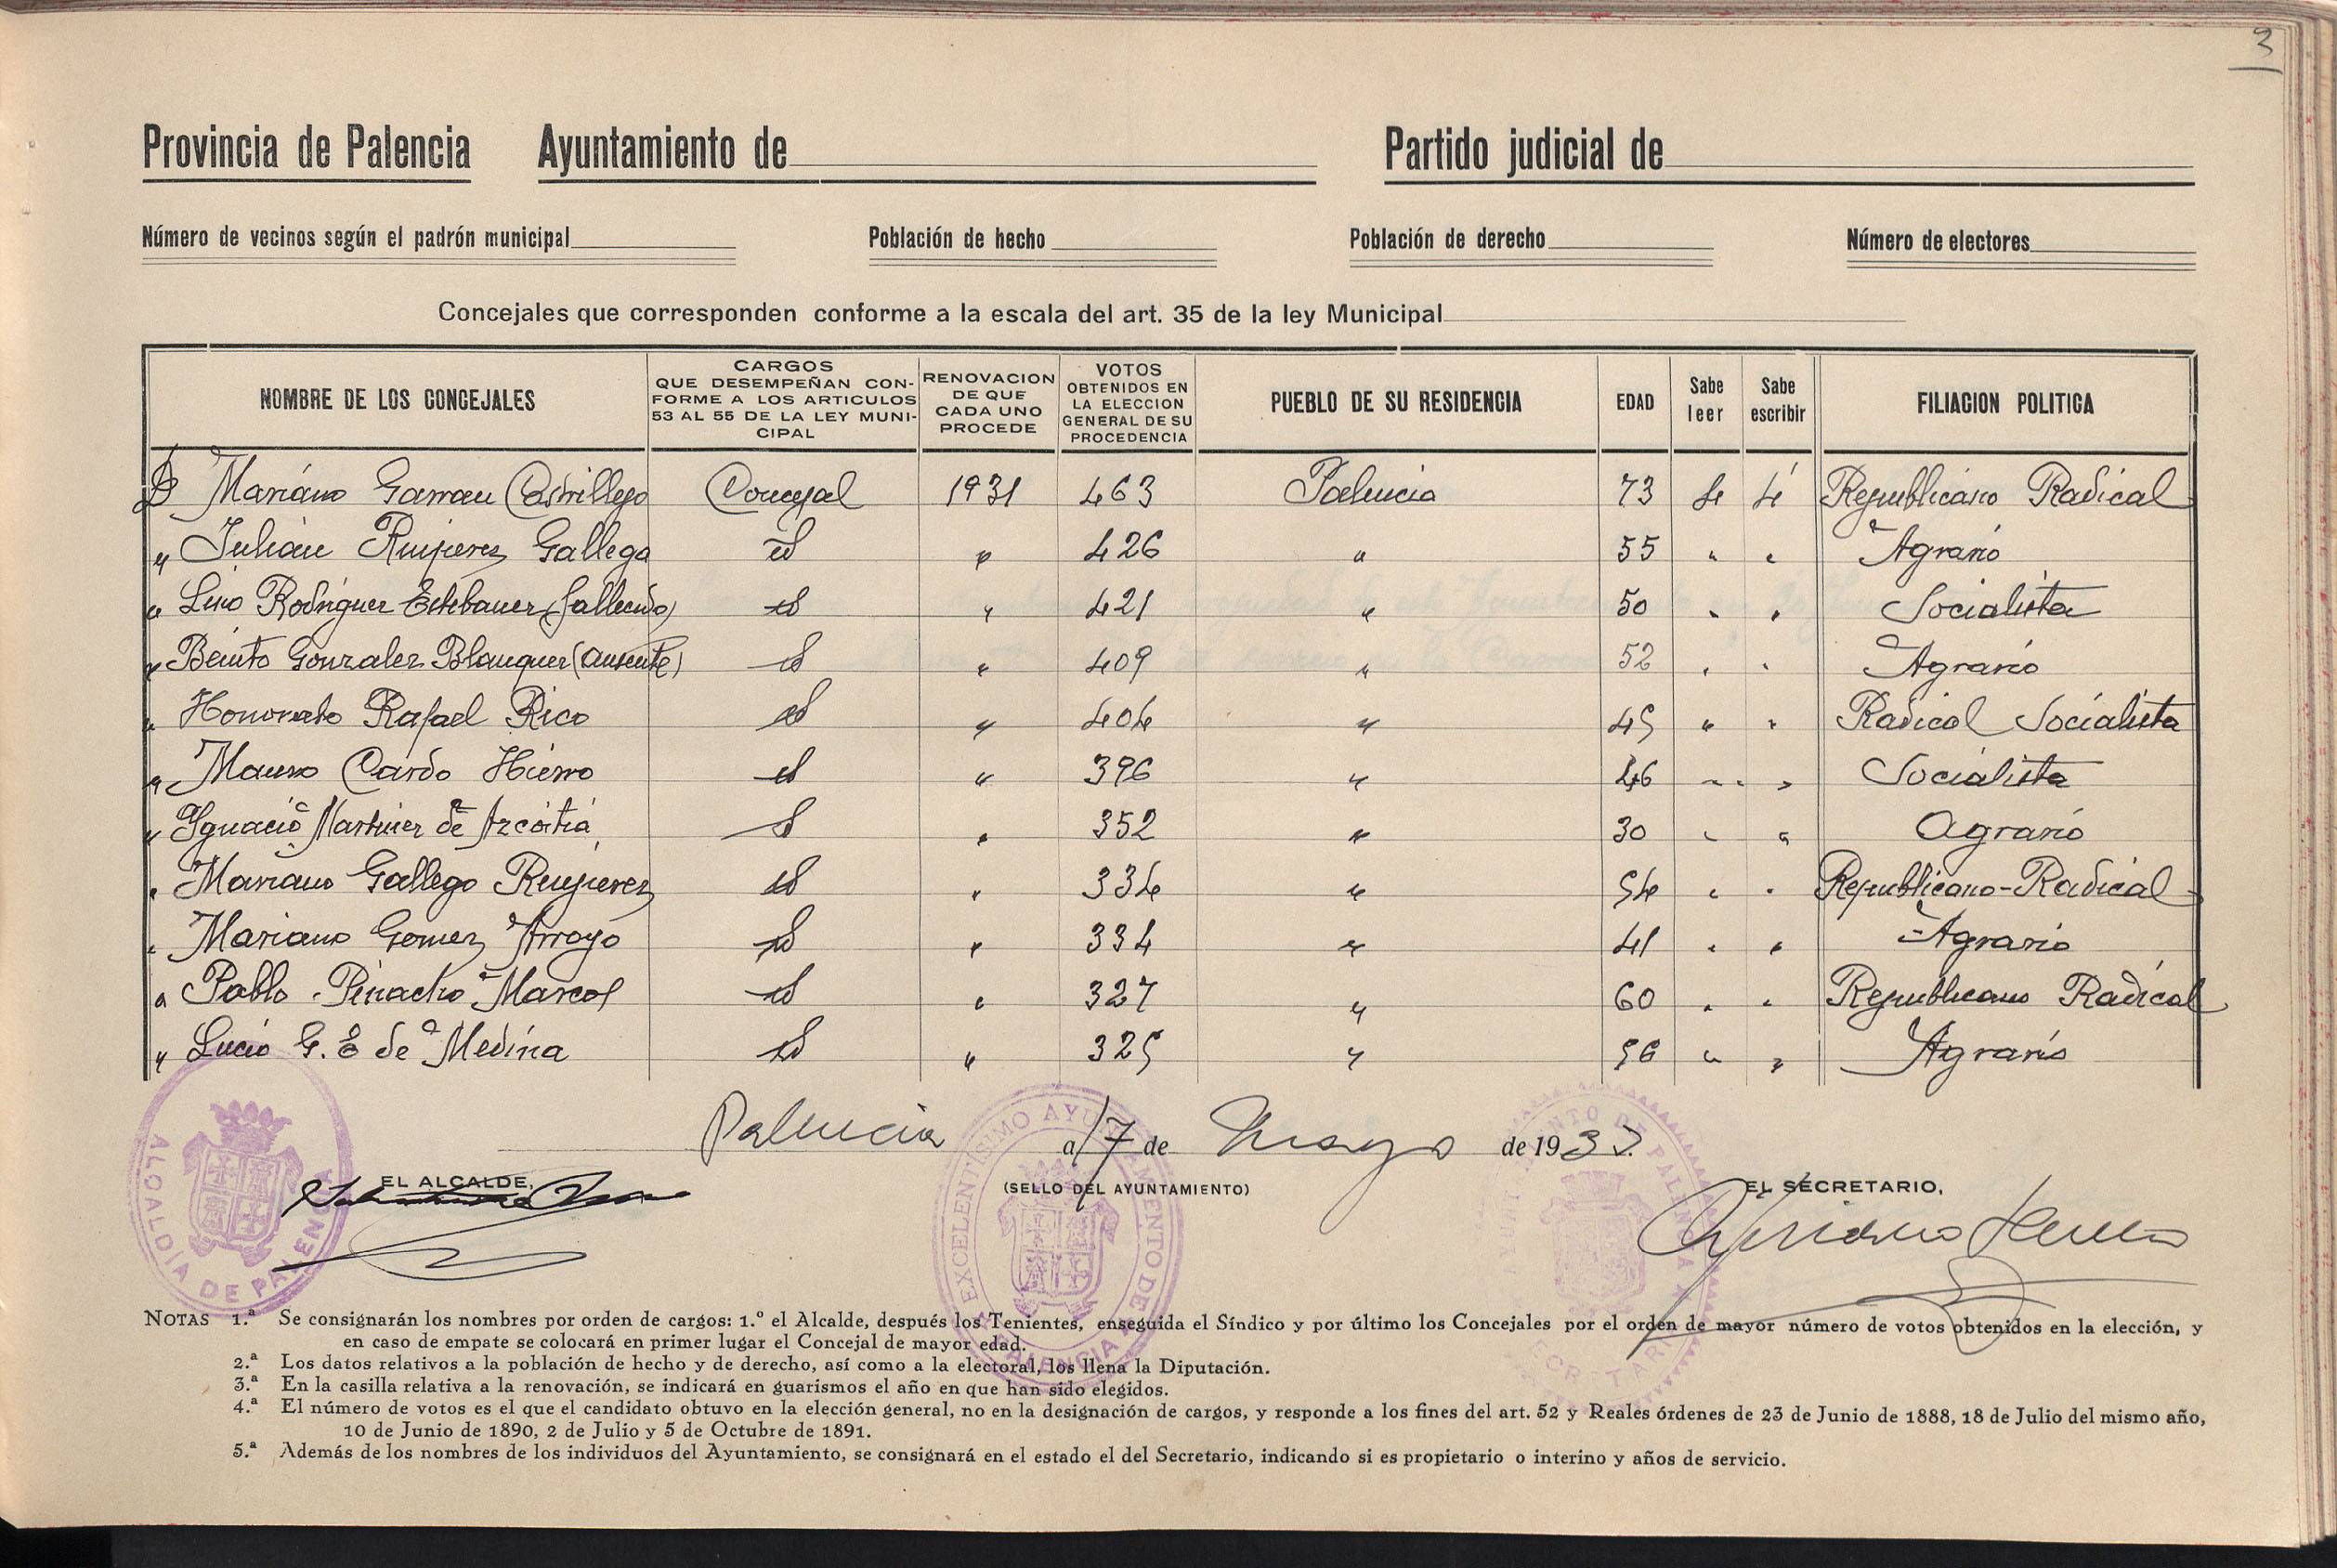 3
Provincia de Palencia Ayuntamiento de Partido judicial de
Número de vecinos según el padrón municipal Población de hecho Población de derecho Número de electores
Concejales que corresponden conforme a la escala del art. 35 de la ley Municipal
NOMBRE DE LOS CONCEJALES
CARGOS
QUE DESEMPEÑAN CON-
FORME A LOS ARTICULOS
53 AL 55 DE LA LEY MUNI-
CIPAL
RENOVACION
DE QUE
CADA UNO
PROCEDE
VOTOS
OBTENIDOS EN
LA ELECCION
GENERAL DE SU
PROCEDENCIA
PUEBLO DE SU RESIDENCIA
EDAD
Sabe
leer
Sabe
escribir
FILIACION POLITICA
D Mariano Garrau Castrillejo Concejal 1931 463 Palencia 73 Sí Sí Republicano Radical
" Julián Ruipérez Gallego id " 426 " 55 " " Agrario
" Lino Rodriguez Estebanez (fallecido) id " 421 " 50 " " Socialista
" Benito Gonzalez Blanquez (ausente) id " 409 " 52 " " Agrario
" Honorato Rafael Rico id " 404 " 45 " " Radical Socialista
" Mauro Cardo Hierro id " 396 " 46 " " Socialista
" Ygnacio Martinez de Azcoitia id " 352 " 30 " " Agrario
" Mariano Gallego Ruipérez id " 334 " 54 " " Republicano-Radical
" Mariano Gomez Arroyo id " 334 " 41 " " Agrario
" Pablo Pinacho Marcos id " 327 " 60 " " Republicano Radical
" Lucio G. de Medina id " 325 " 56 " " Agrario
Palencia a 17 de Mayo de 193
EL ALCALDE,
(SELLO DEL AYUNTAMIENTO)
EL SECRETARIO,
ALCALDÍA DE PALENCIA
EXCELENTISIMO AYUNTAMIENTO DE PALENCIA
NOTAS 1.ª Se consignarán los nombres por orden de cargos: 1.º el Alcalde, después los Tenientes, enseguida el Síndico y por último los Concejales por el orden de mayor número de votos obtenidos en la elección, y
en caso de empate se colocará en primer lugar el Concejal de mayor edad.
2.ª Los datos relativos a la población de hecho y de derecho, así como a la electoral, los llena la Diputación.
3.ª En la casilla relativa a la renovación, se indicará en guarismos el año en que han sido elegidos.
4.ª El número de votos es el que el candidato obtuvo en la elección general, no en la designación de cargos, y responde a los fines del art. 52 y Reales órdenes de 23 de Junio de 1888, 18 de Julio del mismo año,
10 de Junio de 1890, 2 de Julio y 5 de Octubre de 1891.
5.ª Además de los nombres de los individuos del Ayuntamiento, se consignará en el estado el del Secretario, indicando si es propietario o interino y años de servicio.